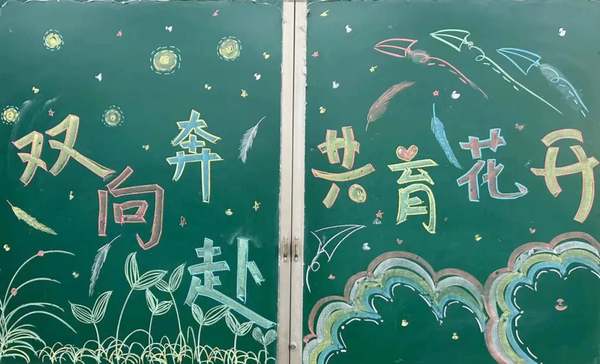 双向奔赴
共育花开